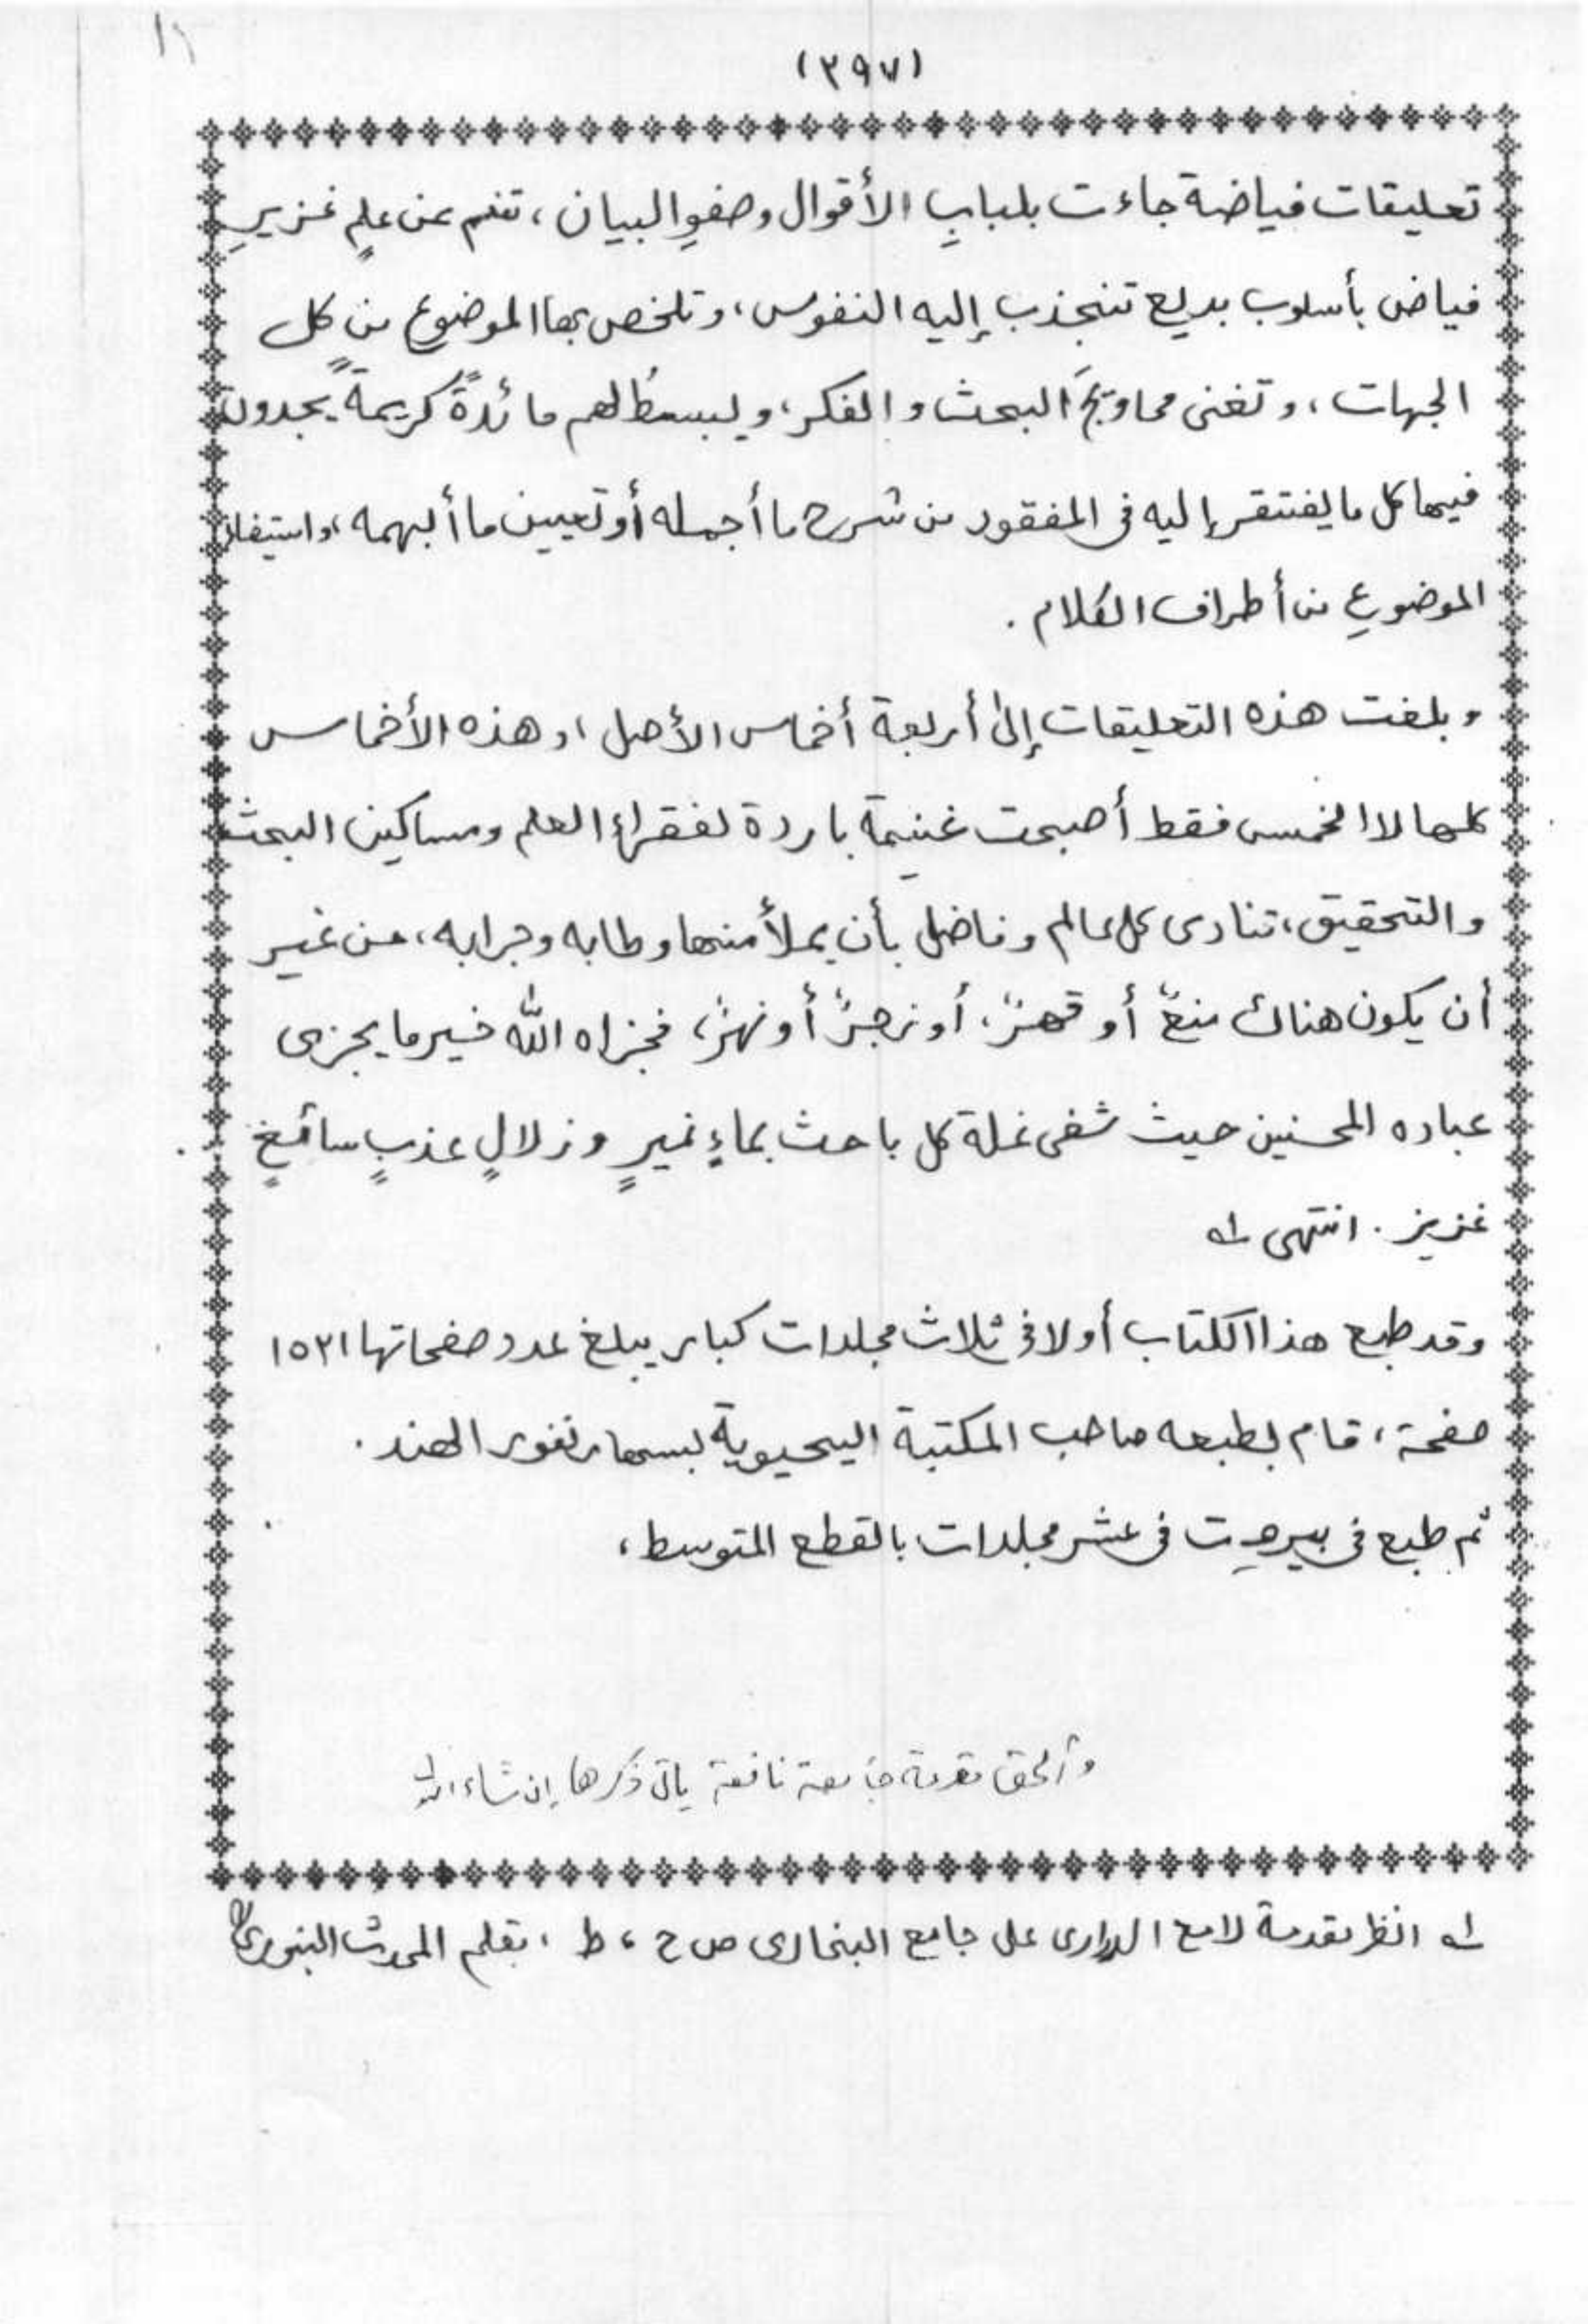 (٣٩٧)
تعليقات فياضة جاءت بلبابِ الأقوال وصفوِ البيان، تنم عن علمٍ غزيرٍ
فياض بأسلوب بديع تنجذب إليه النفوس، وتلخص بها الموضوع من كل
الجهات، وتغنى محاويجَ البحث و الفكر، ويبسطُ لهم مائدةً كريمةً يجدون
فيها كل ما يفتقر إليه فى المفقود من شرح ما أجمله أو تعيين ما أبهمه، واستيفاء
الموضوعِ من أطراف الكلام.
وبلغت هذه التعليقات إلى أربعة أخماس الأصل، وهذه الأخماس
كلها لا الخمس فقط أصبحت غنيمة باردة لفقراء العلم ومساكين البحث
والتحقيق، تنادى كل عالم وفاضل بأن يملأ منها وطابه وجرابه، من غير
أن يكون هناك منعٌ أو قهرٌ، أو زجرٌ أو نهرٌ، فجزاه الله خير ما يجزى
عباده المحسنين حيث شفى غلة كل باحث بماءٍ نميرٍ وزلالٍ عذبٍ سائغٍ
غزيز. انتهى له
وقد طبع هذا الكتاب أولا فى ثلاث مجلدات كبار يبلغ عدد صفحاتها ١٥٢١
صفحة، قام بطبعه صاحب المكتبة اليحيوية بسهارنفور الهند.
ثم طبع فى بيروت فى عشر مجلدات بالقطع المتوسط،
وألحق مقدمة جامعة نافعة يأتى ذكرها إن شاء الله
له انظر مقدمة لامع الدرارى على جامع البخارى ص ح، ط، بقلم المحدث البنورى